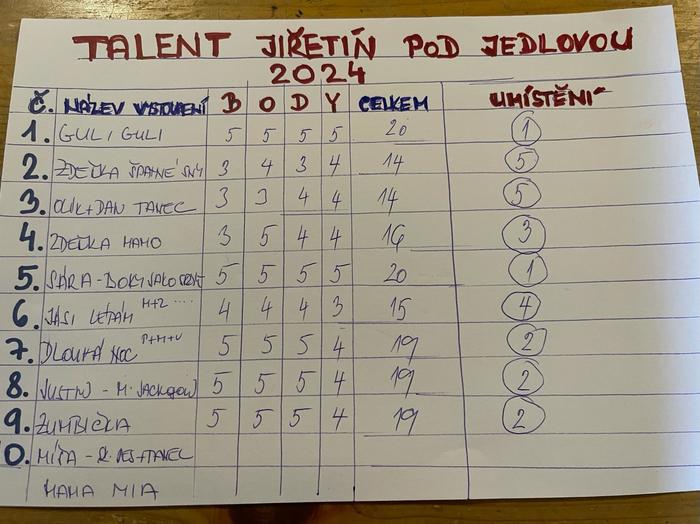 TALENT JIŘETÍN POD JEDLOVOU
2024
Č. NÁZEV VYSTOUPENÍ B O D Y CELKEM UMÍSTĚNÍ
1. GULI GULI 5 5 5 5 20 1
2. ZDEČKA ŠPATNÉ SNY 3 4 3 4 14 5
3. OLIK+DAN TANEC 3 3 4 4 14 5
4. ZDEČKA HAHO 3 5 4 4 16 3
5. SÁRA - BOKY JAKO 5 5 5 5 20 1
6. JÁSI LÉTÁM M+Z .... 4 4 4 3 15 4
7. DLOUHÁ NOC P+M+V 5 5 5 4 19 2
8. JUSTIN - M. JACKSON 5 5 5 4 19 2
9. ZUMBIČKA 5 5 5 4 19 2
0. MÍŠA -
MAMA MIA